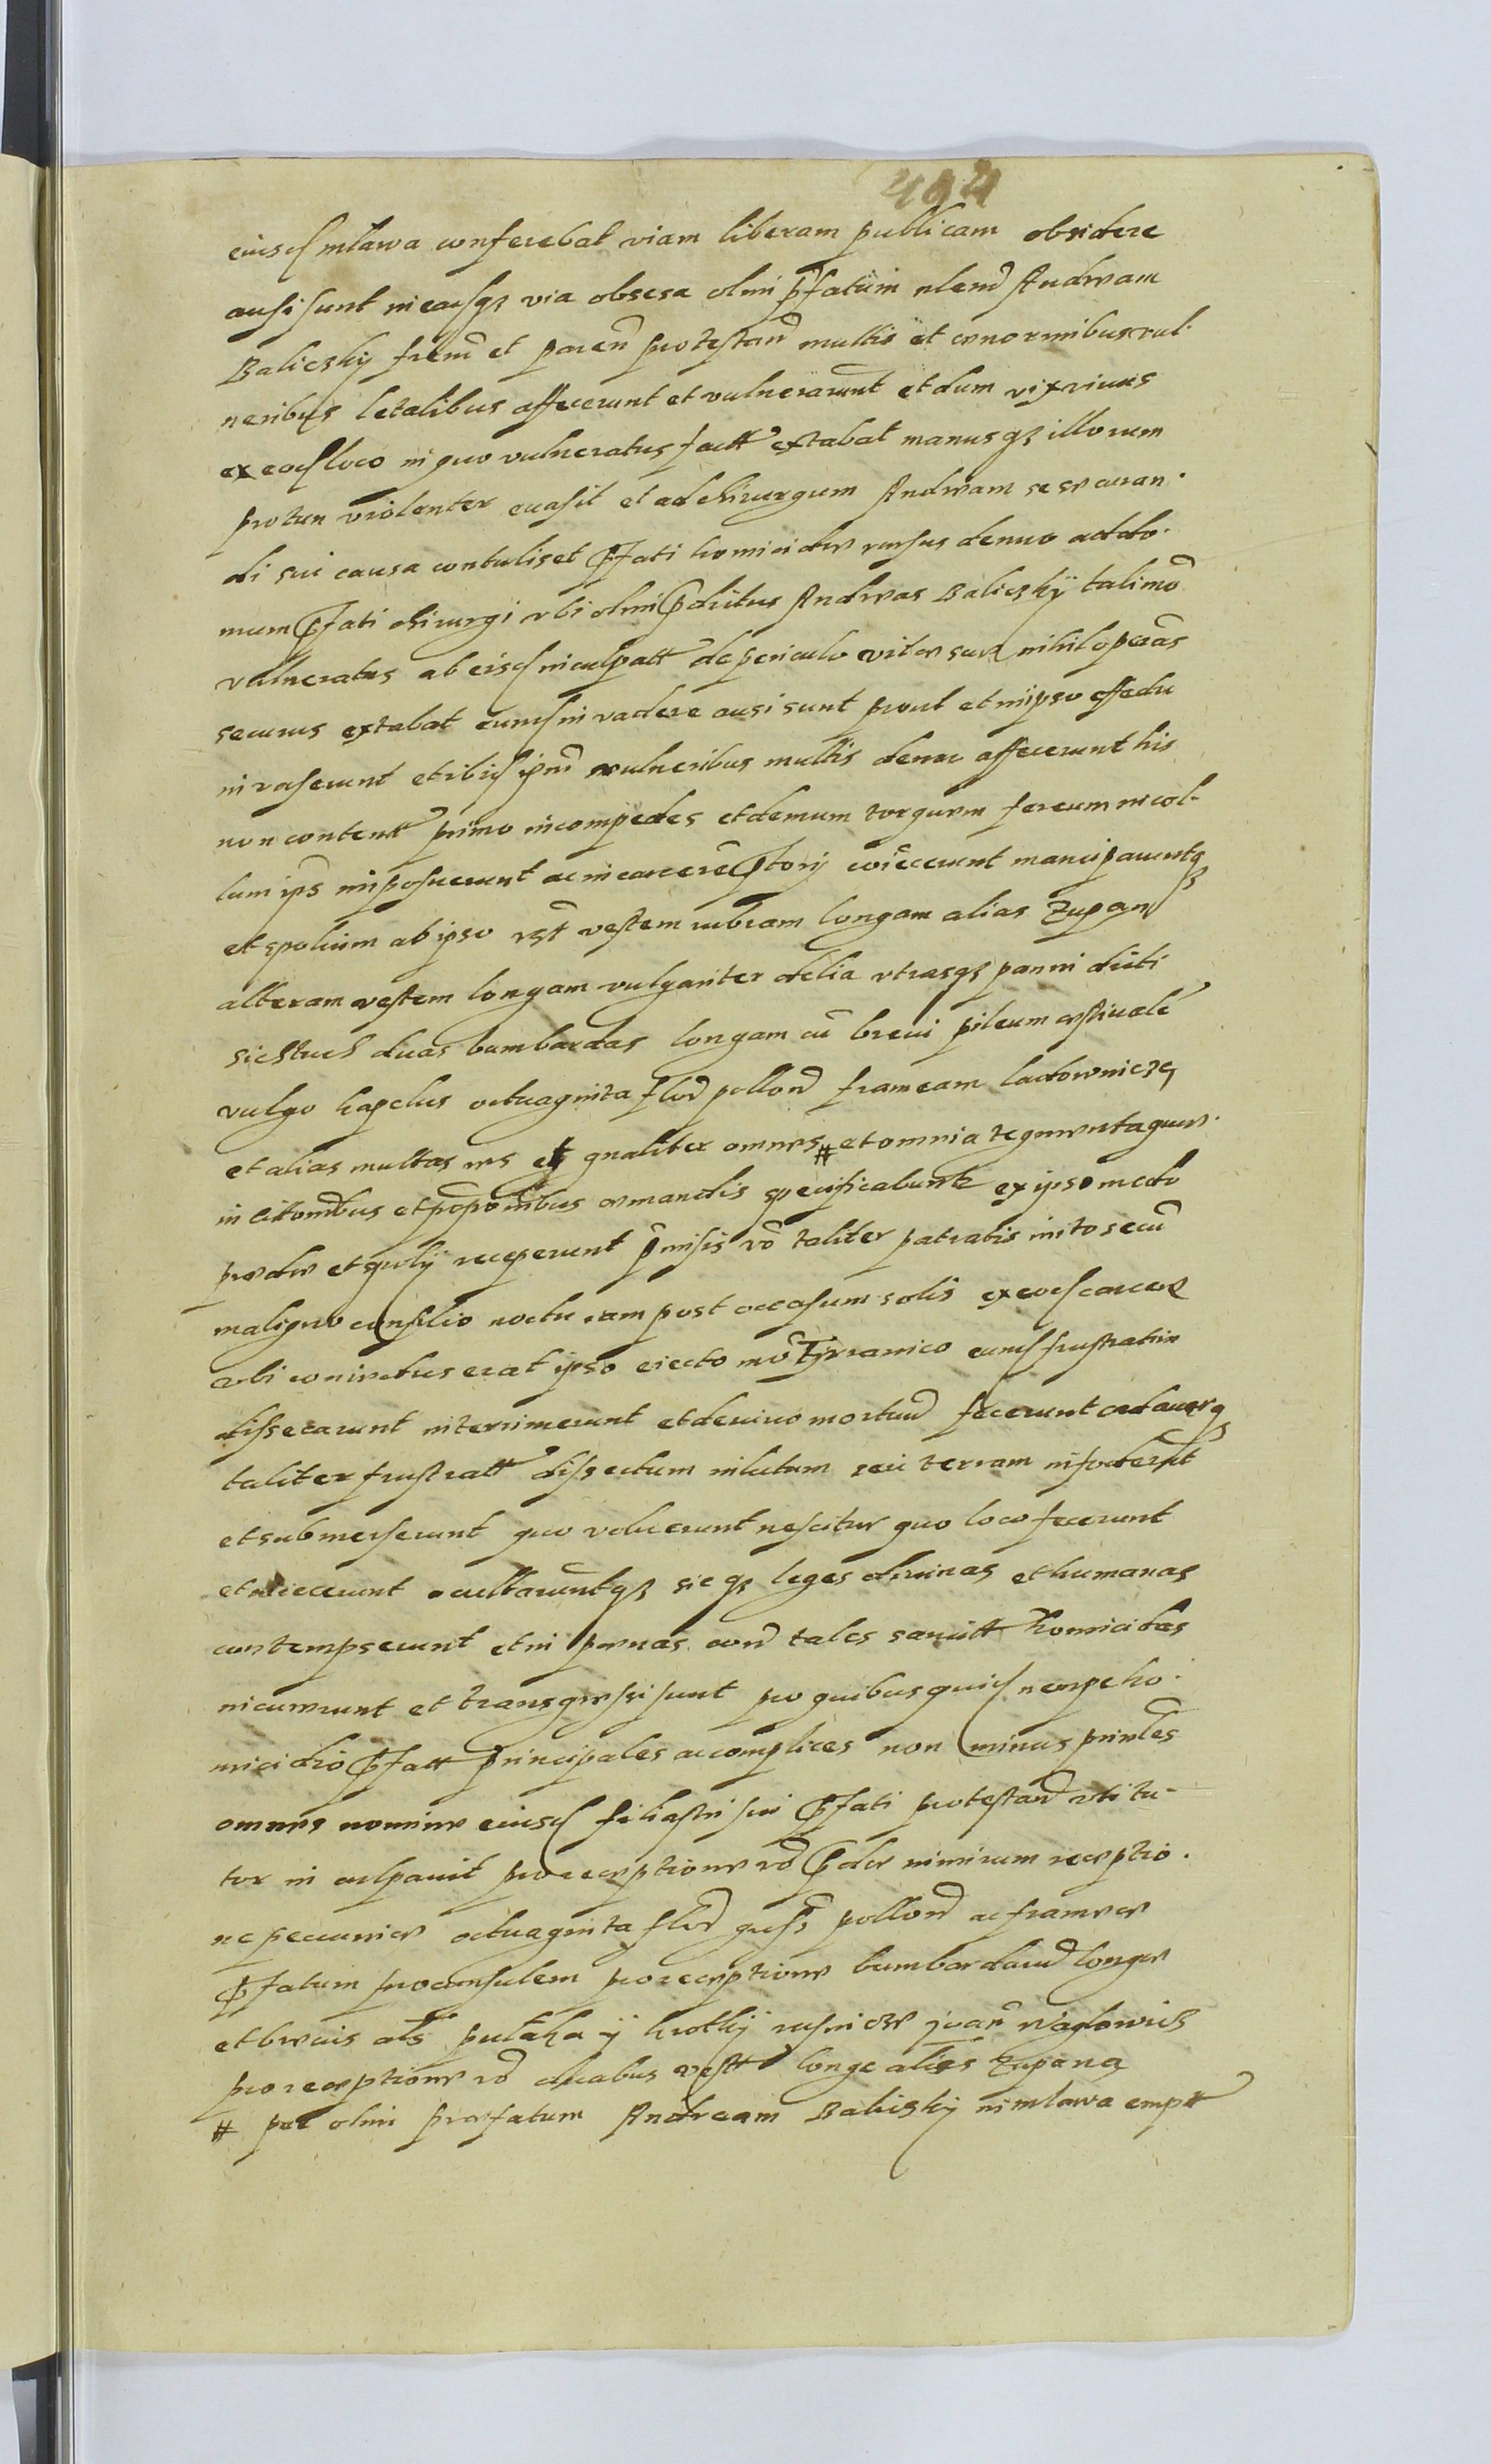 494
eiusd mlawa conferebat viam liberam publicam obsidere
ausi sunt in easqz via obsesa olim pfatum nlem Andream
Baliczky frem et paren protestan multis et enormibus vul-
neribus letalibus affecerunt et vulnerarunt et dum vix vivus
ex eod loco in quo vulneratus fuit extabat manusqz illorum
protun violenter euasit et ad chirurgum Andream se se curan-
di sui causa contuliset pfati homicidae rursus denuo ad do-
mum pfati chirurgi vbi olim pdictus Andreas Baliczky tali mo
vulneratus ab eisd inculpatt de periculo vitae suae nihil operas
securus extabat eund invadere ausi sunt prout et in ipso effectu
invaserunt et ibid ipm vulneribus multis denuo affecerunt his
non contentt primo in compedes et demum torquem fereum in col-
lum ips imposuerunt ac in carcere ptorij coiecerunt manciparuntqz
et spolium ab ipso vst vestem rubram longam alias zupan
alteram vestem longam vulgariter delia vtrasqz panni dicti
sichtuch duas bombardas longam cu breui pileum aestiuale
vulgo kapelus octuaginta flor pollon frameam ladownicze
et alias multas res et gnaliter omnes # et omnia tegumenta quae-
in citationibus et pponibus armandis specificabuntr ex ipso modo
predae et spolij receperunt pmissis vo taliter patratis inito secu
maligno consilio noctu iam post occasum solis ex eod carcere
vbi conivctus erat ipso eiecto mo Tyrranico eund frustratim
dissecarunt interimerunt et de viuo mortuu fecerunt cadauerqz
taliter frustratt dissectum in lutum seu terram infoderunt
et submerserunt quo voluerunt nescitur quo loco fecerunt
et abiecerunt ocultaruntqz sicqz leges diuinas et humanas
contempserunt et in penas con tales sancitt homicidas
incurrerunt et transgressi sunt pro quibus quid nempe ho-
micidio pfatt principales ac complices non minus prinles
omnes nomine eiusd filiastri sui pfati protestan vti tu-
tor in culpauit pro receptione vo pdae nimirum receptio-
ne pecuniae octuaginta flor quss pollon ac frameae
pfatum proconsulem pro receptione bombardaru longae
et breuis als pulhaka y krotky rusnicze
pro receptione vo duabus vestt longe alias zupana
# per olim praefatum Andream Baliczky in mlawa emptt